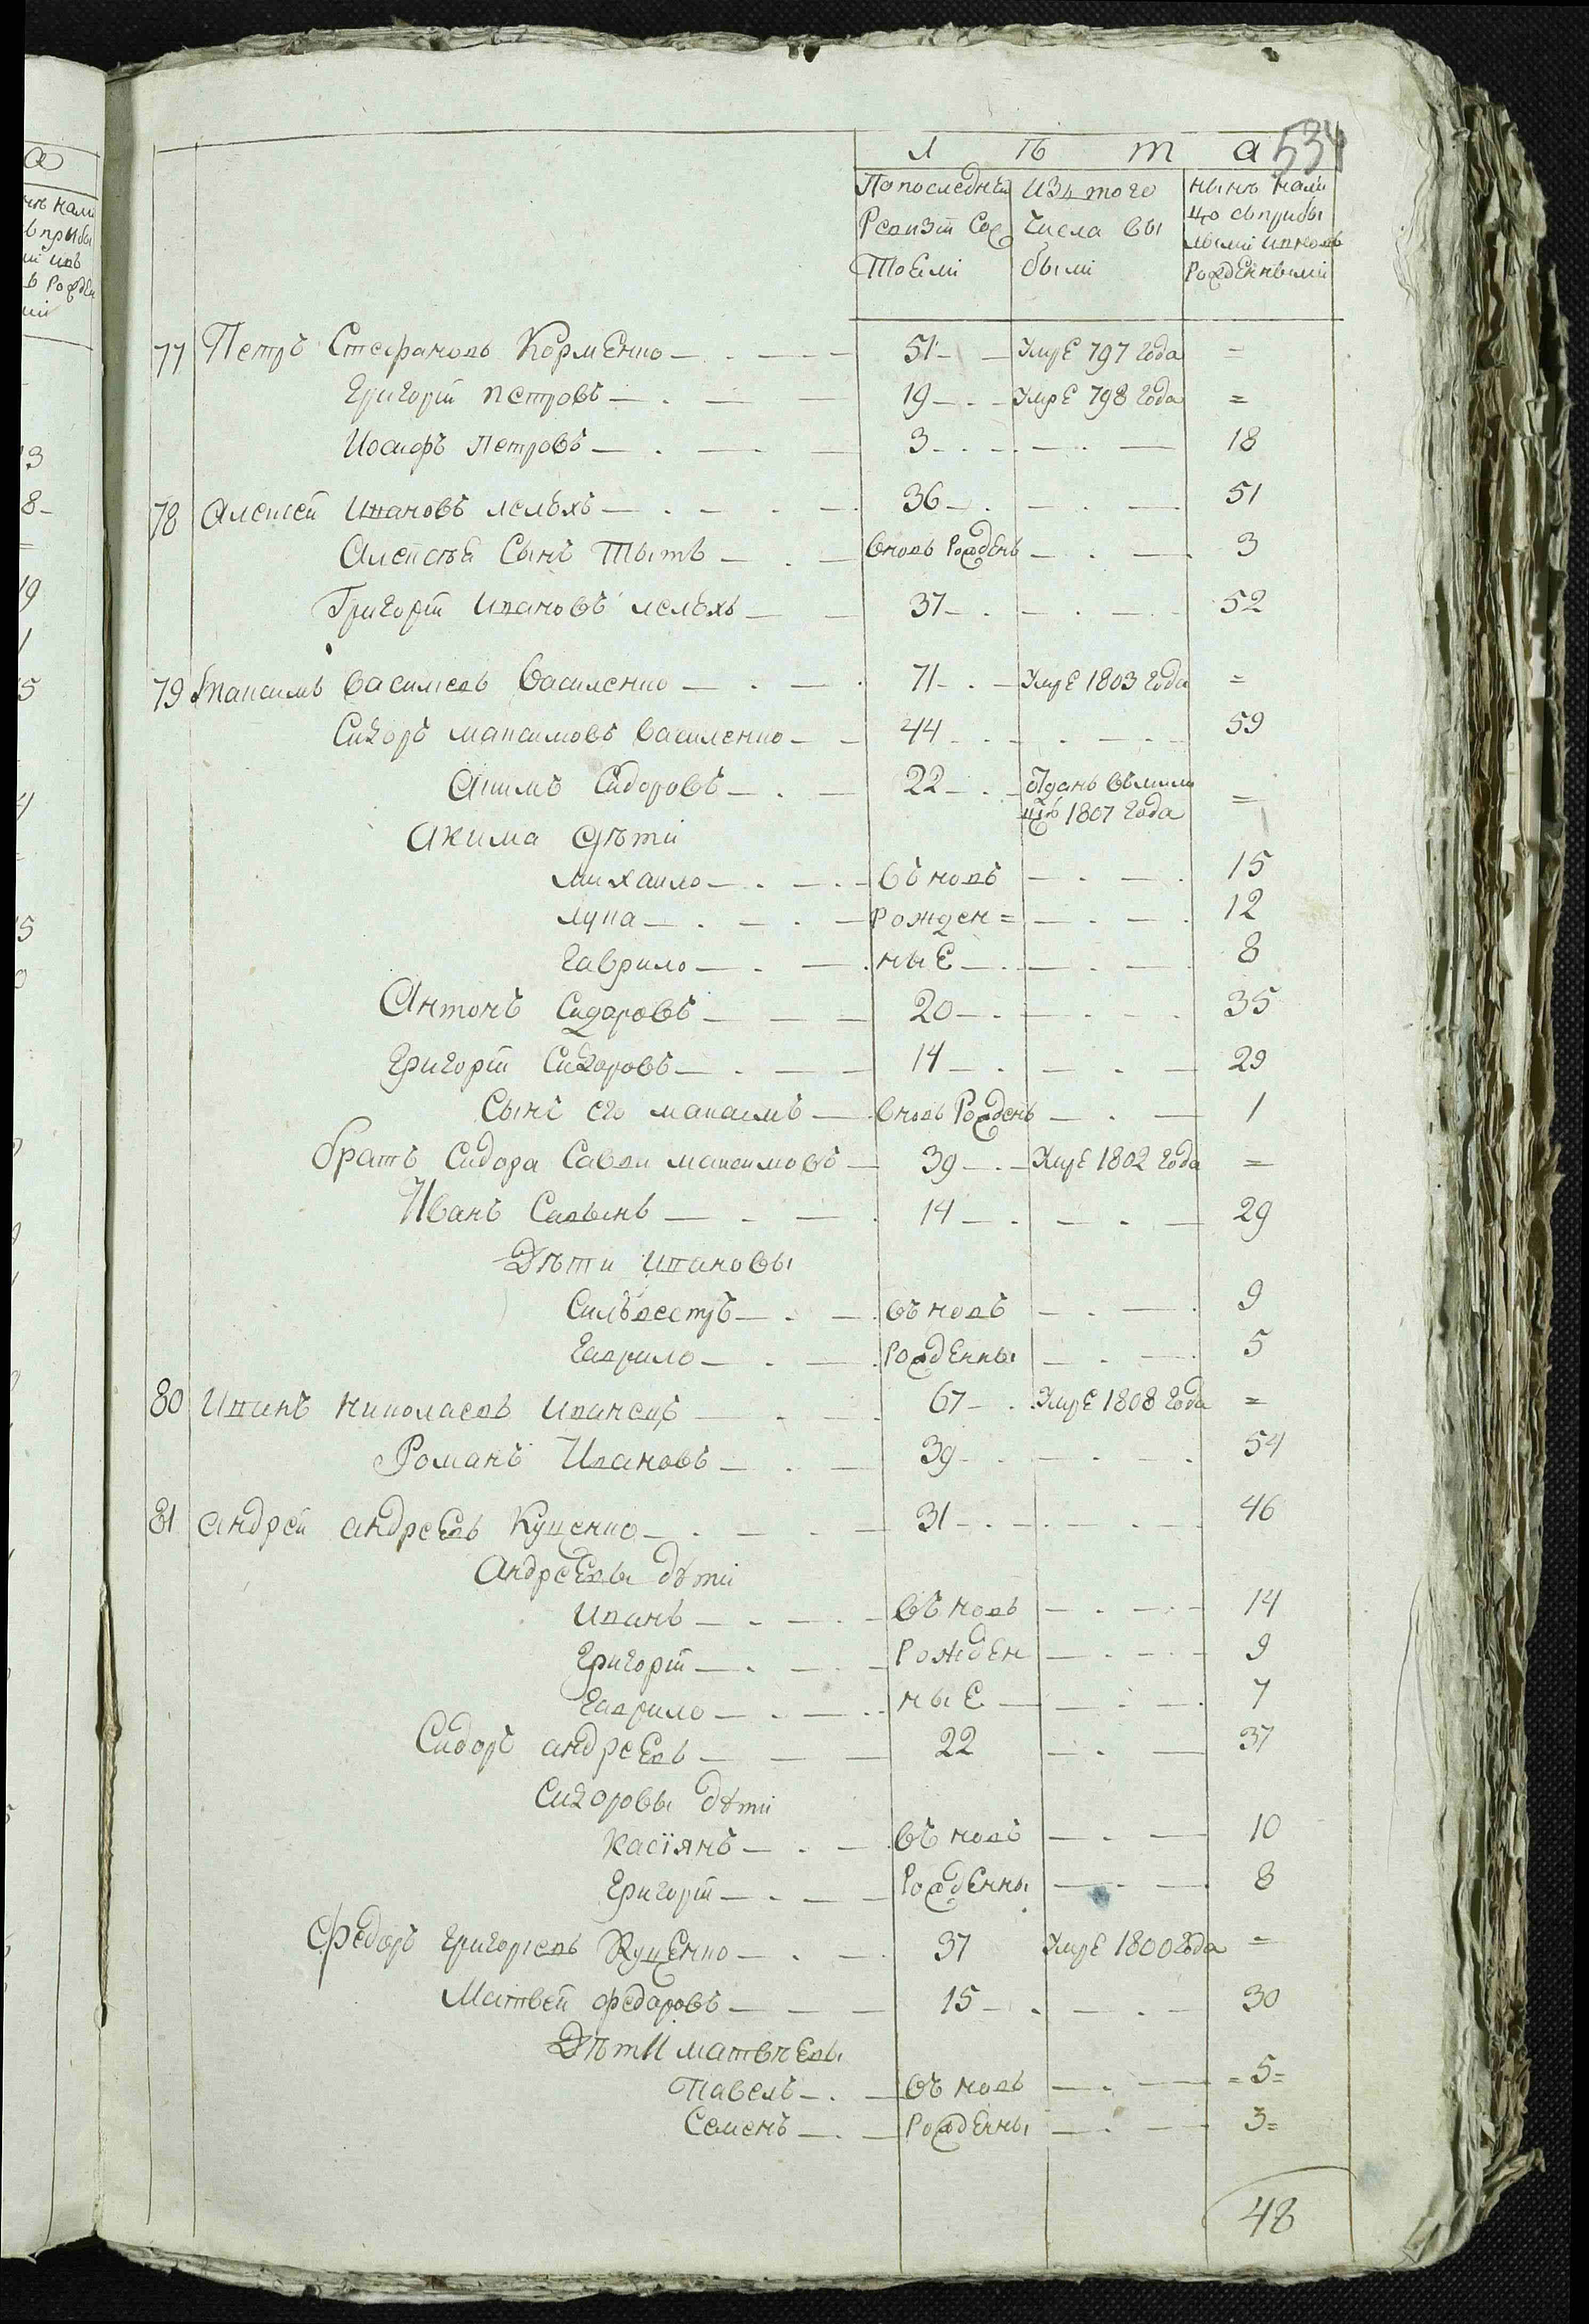 Л ѣ т а 534
По последнѣй Ревизіи Состоели
Изъ того числа выбыли
нынѣ налицо съ прибылыми и вновь рожденными
77 Петръ Стефановъ Корменко 51 Умре 797 года =
Григорій Петровъ 19 Умре 798 года =
Иосифъ Петровъ 3 18
78 Алексей Ивановъ Лелѣхъ 36 51
Алексѣя Сынъ Титъ вновь рожденъ 3
Григорій Ивановъ Лелѣхъ 37 52
79 Максимъ Василіевъ Василенко 71 Умре 1803 года =
Сидоръ Максимовъ Василенко 44 59
Акимъ Сидоровъ 22 Отданъ въ милицію 1807 года =
Акима дѣти
Михаило въновь 15
Лука рожден= 12
Гаврило ные 8
Антонъ Сидоровъ 20 35
Григорій Сидоровъ 14 29
Сынъ его Максимъ вновь рожденъ 1
Братъ Сидора Савва Максимовъ 39 Умре 1802 года =
Иванъ Савынъ 14 29
Дѣти Ивановы
Силвестръ въновь 9
Гаврило рожденны 5
80 Иванъ Николаевъ Иванецъ 67 Умре 1808 года =
Романъ Ивановъ 39 54
81 Андрей Андреевъ Куценко 31 46
Андреевы дѣти
Иванъ въновь 14
Григорій рожден 9
Гаврило ные 7
Сидоръ Андреевъ 22 37
Сидоровы дѣти
Касіянъ въновь 10
Григорій рожденны 8
Федоръ Григоріевъ Куценко 37 Умре 1800 года =
Матвей Федоровъ 15 30
Дѣти Матвѣевы
Павелъ въновь = 5 =
Семенъ рожденны 3 =
48